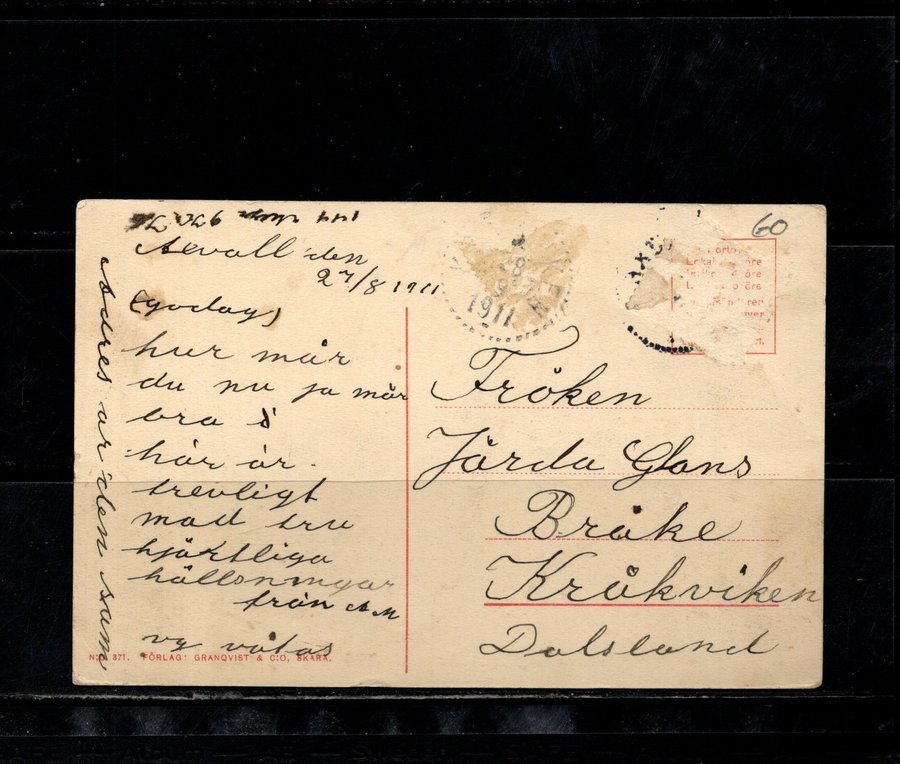 Axvall den
27/8 1911
(godag)
hur mår
du nu ja mår
bra
här är
trevligt
mad tru
hjärtliga
hällsningar
från A M
vy vötas
Adres är den sam
N:o 371. FÖRLAG: GRANQVIST & C:O, SKARA.
1911
60
Fröken
Järda Glans
Bräke
Kråkviken
Dalsland